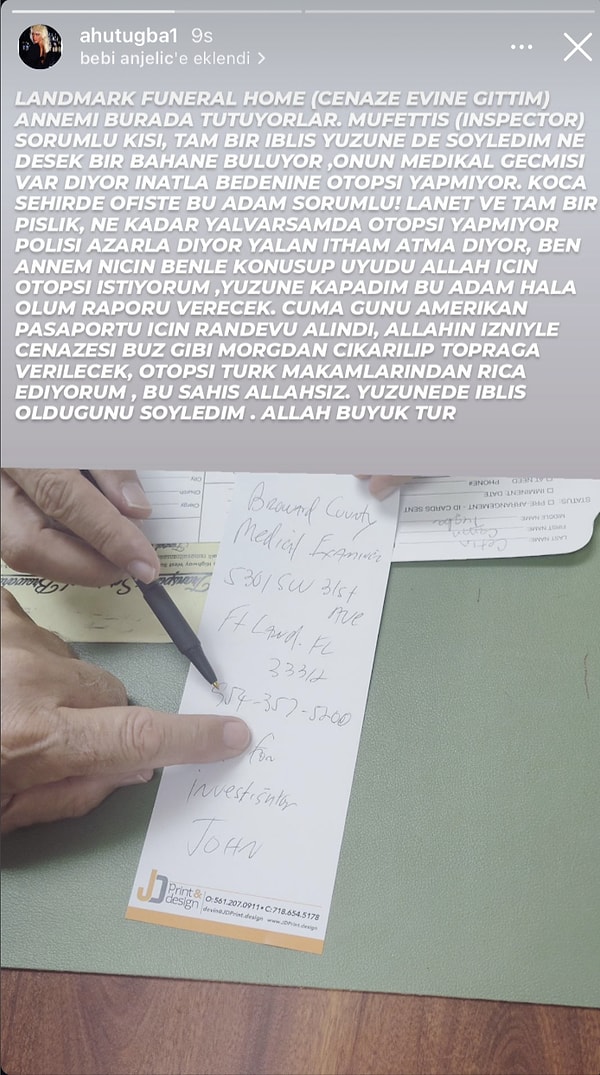 ahutugba1 9s
bebi anjelic'e eklendi >
LANDMARK FUNERAL HOME (CENAZE EVINE GITTIM)
ANNEMI BURADA TUTUYORLAR. MUFETTIS (INSPECTOR)
SORUMLU KISI, TAM BIR IBLIS YUZUNE DE SOYLEDIM NE
DESEK BIR BAHANE BULUYOR ,ONUN MEDIKAL GECMISI
VAR DIYOR INATLA BEDENINE OTOPSI YAPMIYOR. KOCA
SEHIRDE OFISTE BU ADAM SORUMLU! LANET VE TAM BIR
PISLIK, NE KADAR YALVARSAMDA OTOPSI YAPMIYOR
POLISI AZARLA DIYOR YALAN ITHAM ATMA DIYOR, BEN
ANNEM NICIN BENLE KONUSUP UYUDU ALLAH ICIN
OTOPSI ISTIYORUM ,YUZUNE KAPADIM BU ADAM HALA
OLUM RAPORU VERECEK. CUMA GUNU AMERIKAN
PASAPORTU ICIN RANDEVU ALINDI, ALLAHIN IZNIYLE
CENAZESI BUZ GIBI MORGDAN CIKARILIP TOPRAGA
VERILECEK, OTOPSI TURK MAKAMLARINDAN RICA
EDIYORUM , BU SAHIS ALLAHSIZ. YUZUNEDE IBLIS
OLDUGUNU SOYLEDIM . ALLAH BUYUK TUR
STATUS: PRE-ARRANGEMENT - ID CARDS SENT
IMMINENT: DATE
AT NEED PHONE#
LAST NAME:
FIRST NAME:
MIDDLE NAME:
City
Church
Clergy
Broward County
Medical Examiner
5301 SW 31st
AVE
Ft Laud. FL
33312
954-357-5200
for
investigator
JOHN
JD Print & design
O:561.207.0911 • C:718.654.5178
devin@JDPrint.design www.JDPrint.design